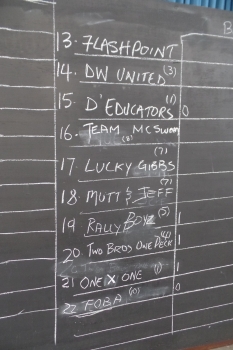 B
13. FLASHPOINT
14. DW UNITED (3)
15. D'EDUCATORS (1) 0
16. TEAM MCSWEEN (2)
17. LUCKY GIBBS (7)
18. MUTT & JEFF (7)
19 RALLY BOYZ (5) 1
20 TWO BROS ONE DECK (4) 1
21 ONE X ONE (1) 1
22 FOBA (0) 0